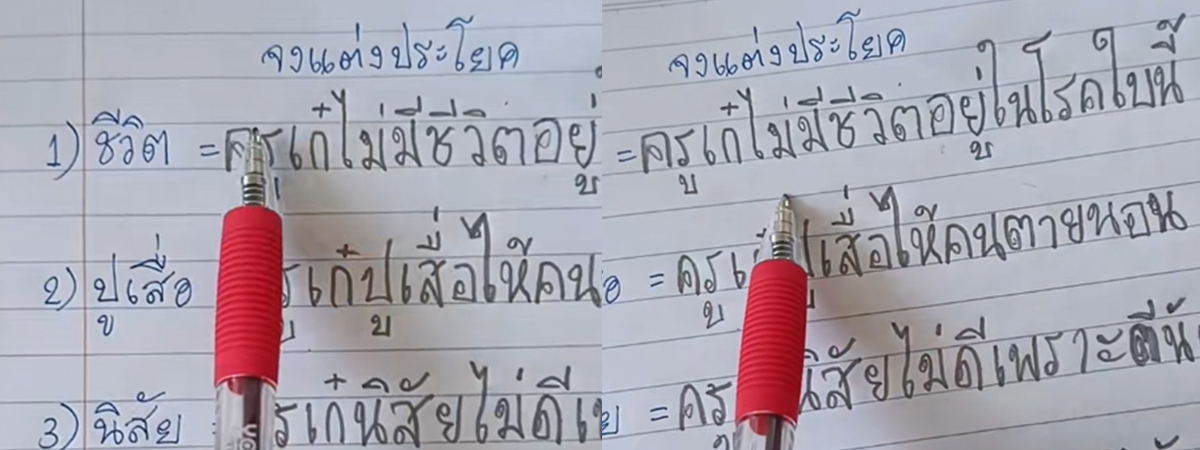 จงแต่งประโยค
1) ชีวิต = ครูเก๋ไม่มีชีวิตอยู่
2) ปูเสื่อ รูเก๋ปูเสื่อให้คน
3) นิสัย รูเก๋นิสัยไม่ดีเ
จงแต่งประโยค
= ครูเก๋ไม่มีชีวิตอยู่ในโรคใบนี้
อ = ครูเก๋ปูเสื่อให้คนตายนอน
ย = ครู นิสัยไม่ดีเพราะ